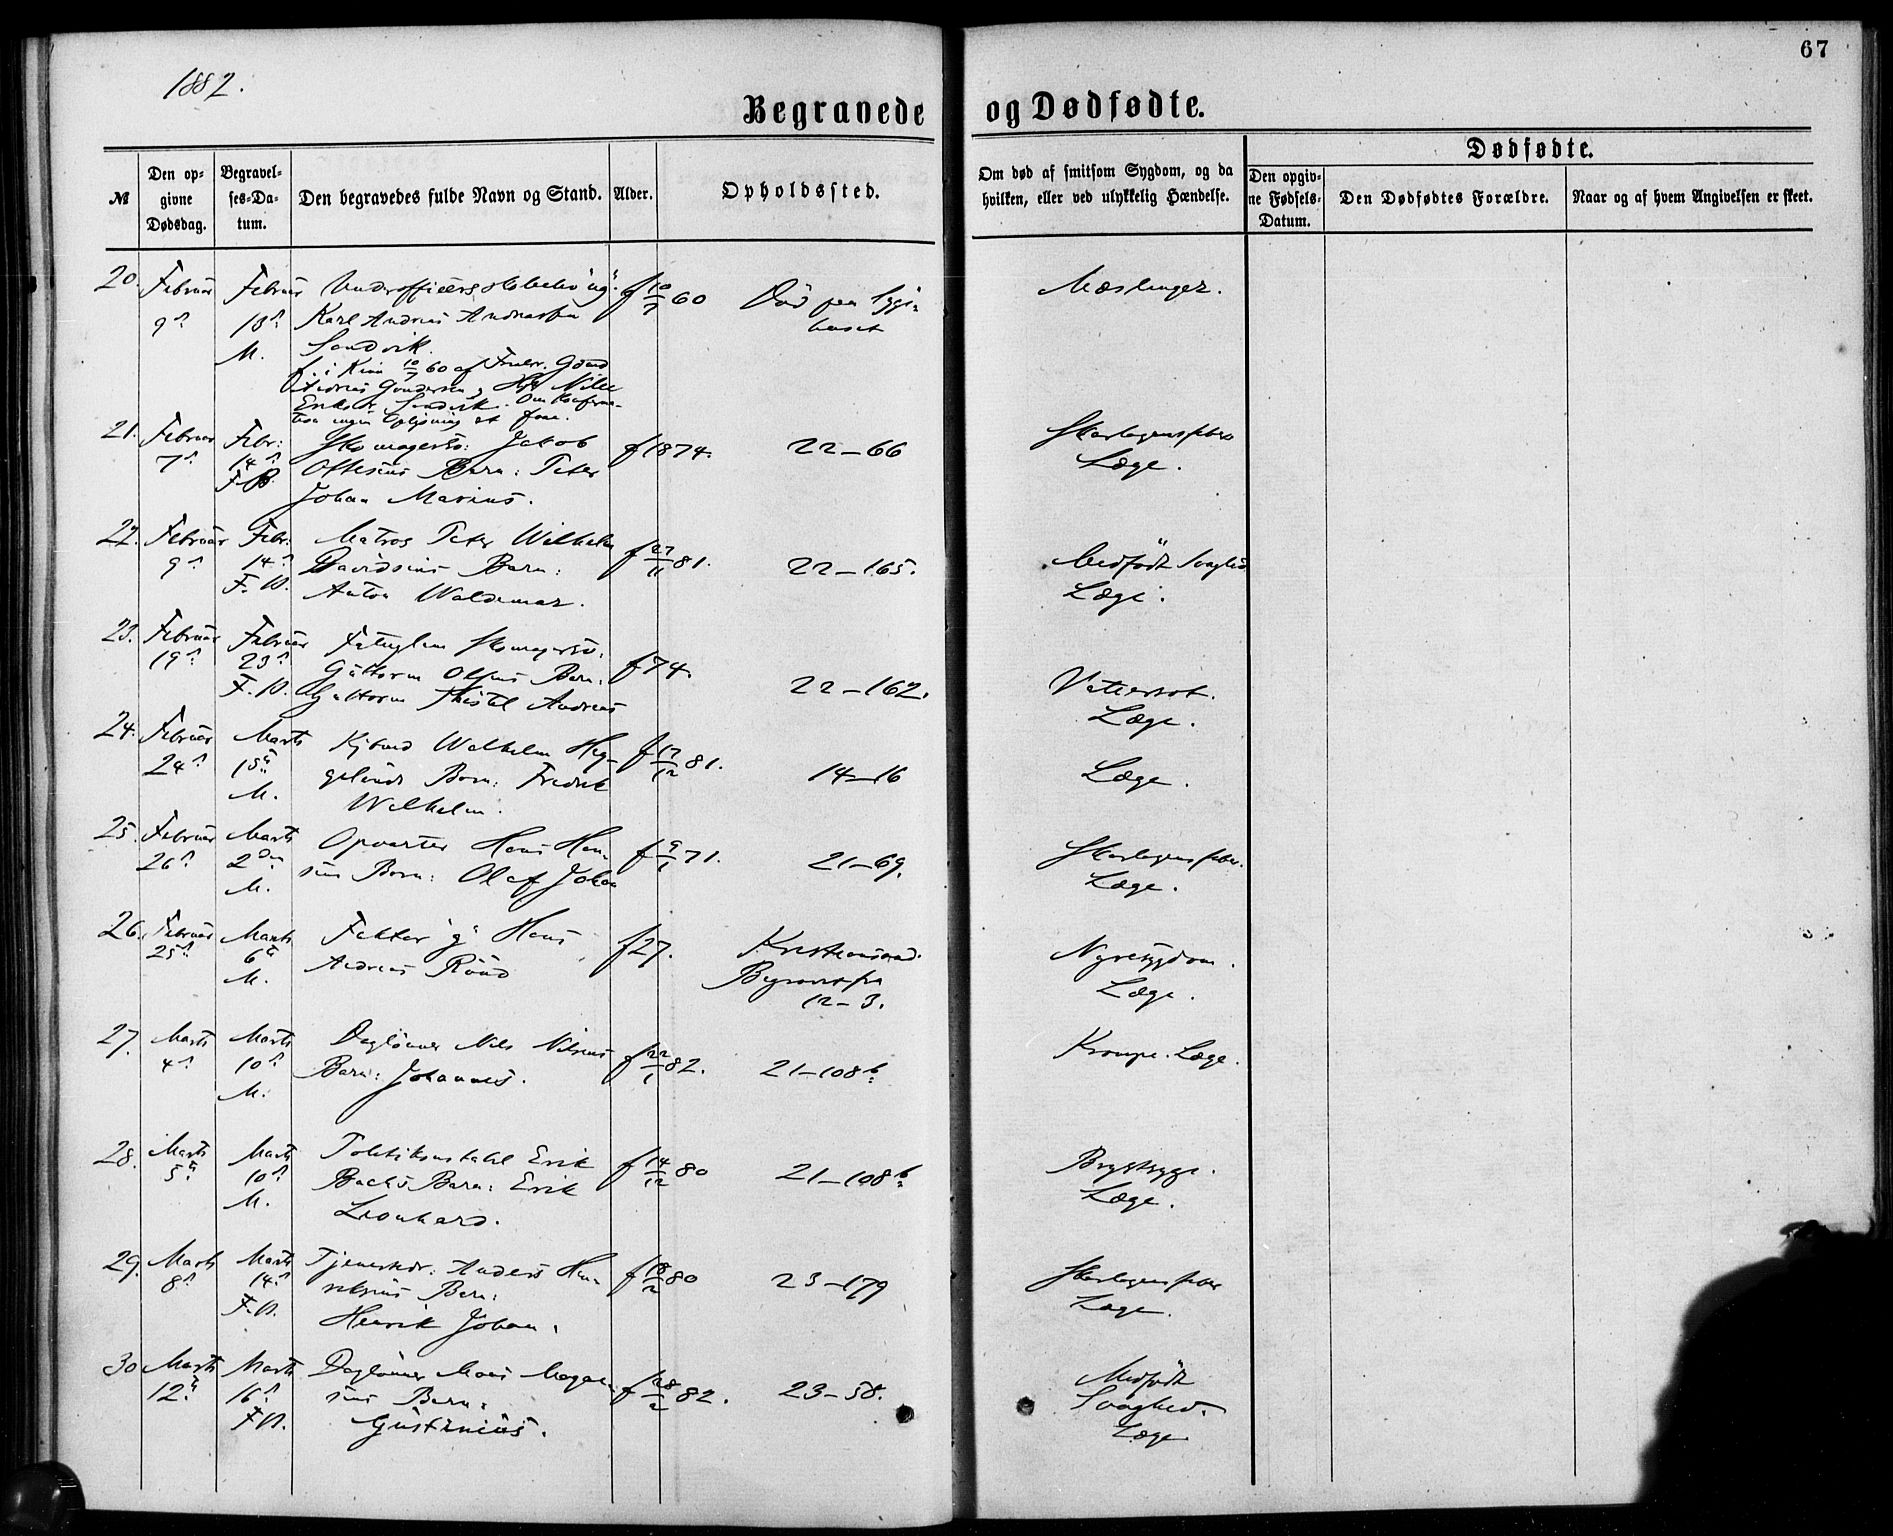 67
1882.
Begravede og Dødfødte.
№
Den op-
givne
Dødsdag.
Begravel-
ses-Da-
tum.
Den begravedes fulde Navn og Stand.
Alder.
Opholdssted.
Om død af smitsom Sygdom, og da
hvilken, eller ved ulykkelig Hændelse.
Dødfødte.
Den opgiv-
ne Fødsels-
Datum.
Den Dødfødtes Forældre.
Naar og af hvem Angivelsen er skeet.
20. Februar Februar f 10/7 60 Død paa Syge- Mæslinger.
9de 13de Karl Andreas Andreassen huset
M. Sandvik.
f. i Kinn 10/7 60 af
Andreas Gundersen og
Eriksdr. Sandvik. Om Konfirma-
tion ingen Oplysning at faa.
21. Februar Febr: Skomagersv: Jakob f 1874. 22–66 Skarlagensfeber
7de 14de Olsens Barn: Peter Læge.
F.B. Johan Marius.
22. Februar Febr: Matros Peter Wilhelm f 27/11 81. 22–165. Medfødt Svaghed
9de 14de Davidsens Barn: Læge.
F.B. Anton Waldemar.
23. Februar Februar Fattiglem Skomagersv: f 74.
19de 23de Guttorm Olsens Barn: 22–162. Vattersot.
F.B. Guttorm Andreas Læge.
24. Februar Marts Kjbmd Wilhelm Heg- f 17/12 81. 14–16 Læge.
24de 1ste gelunds Barn: Fredrik
M. Wilhelm.
25. Februar Marts Opvarter Hans Han- f 9/1 71. 21–69. Skarlagensfeber.
26de 2den sens Barn: Olaf Johan Læge.
M.
26. Februar Marts Faktor g. Hans f 27. Kristianssand. Nyresygdom.
25de 6te Andreas Røud Læge.
M. 12–3.
27. Marts Marts Dagløнner Nils Nilsens f 22/1 82. 21–108b Kroupe. Læge.
4de 10de Barn: Johannes.
M.
28. Marts Marts Politikonstabel Erik f 14/12 80 21–108b Brystsyge.
5te 10de Backs Barn: Erik Læge.
M. Leonhard.
29. Marts Marts Tjenestkr: Anders Hen- f 18/2 80 23–179 Skarlagensfeber
8de 14de riksens Barn: Læge.
F.B. Henrik Johan.
30 Marts Marts Dagløнner f 28/2 82. 23–58. Medfødt
12te 16de sens Barn: Svaghed.
F.B. Gustinius. Læge